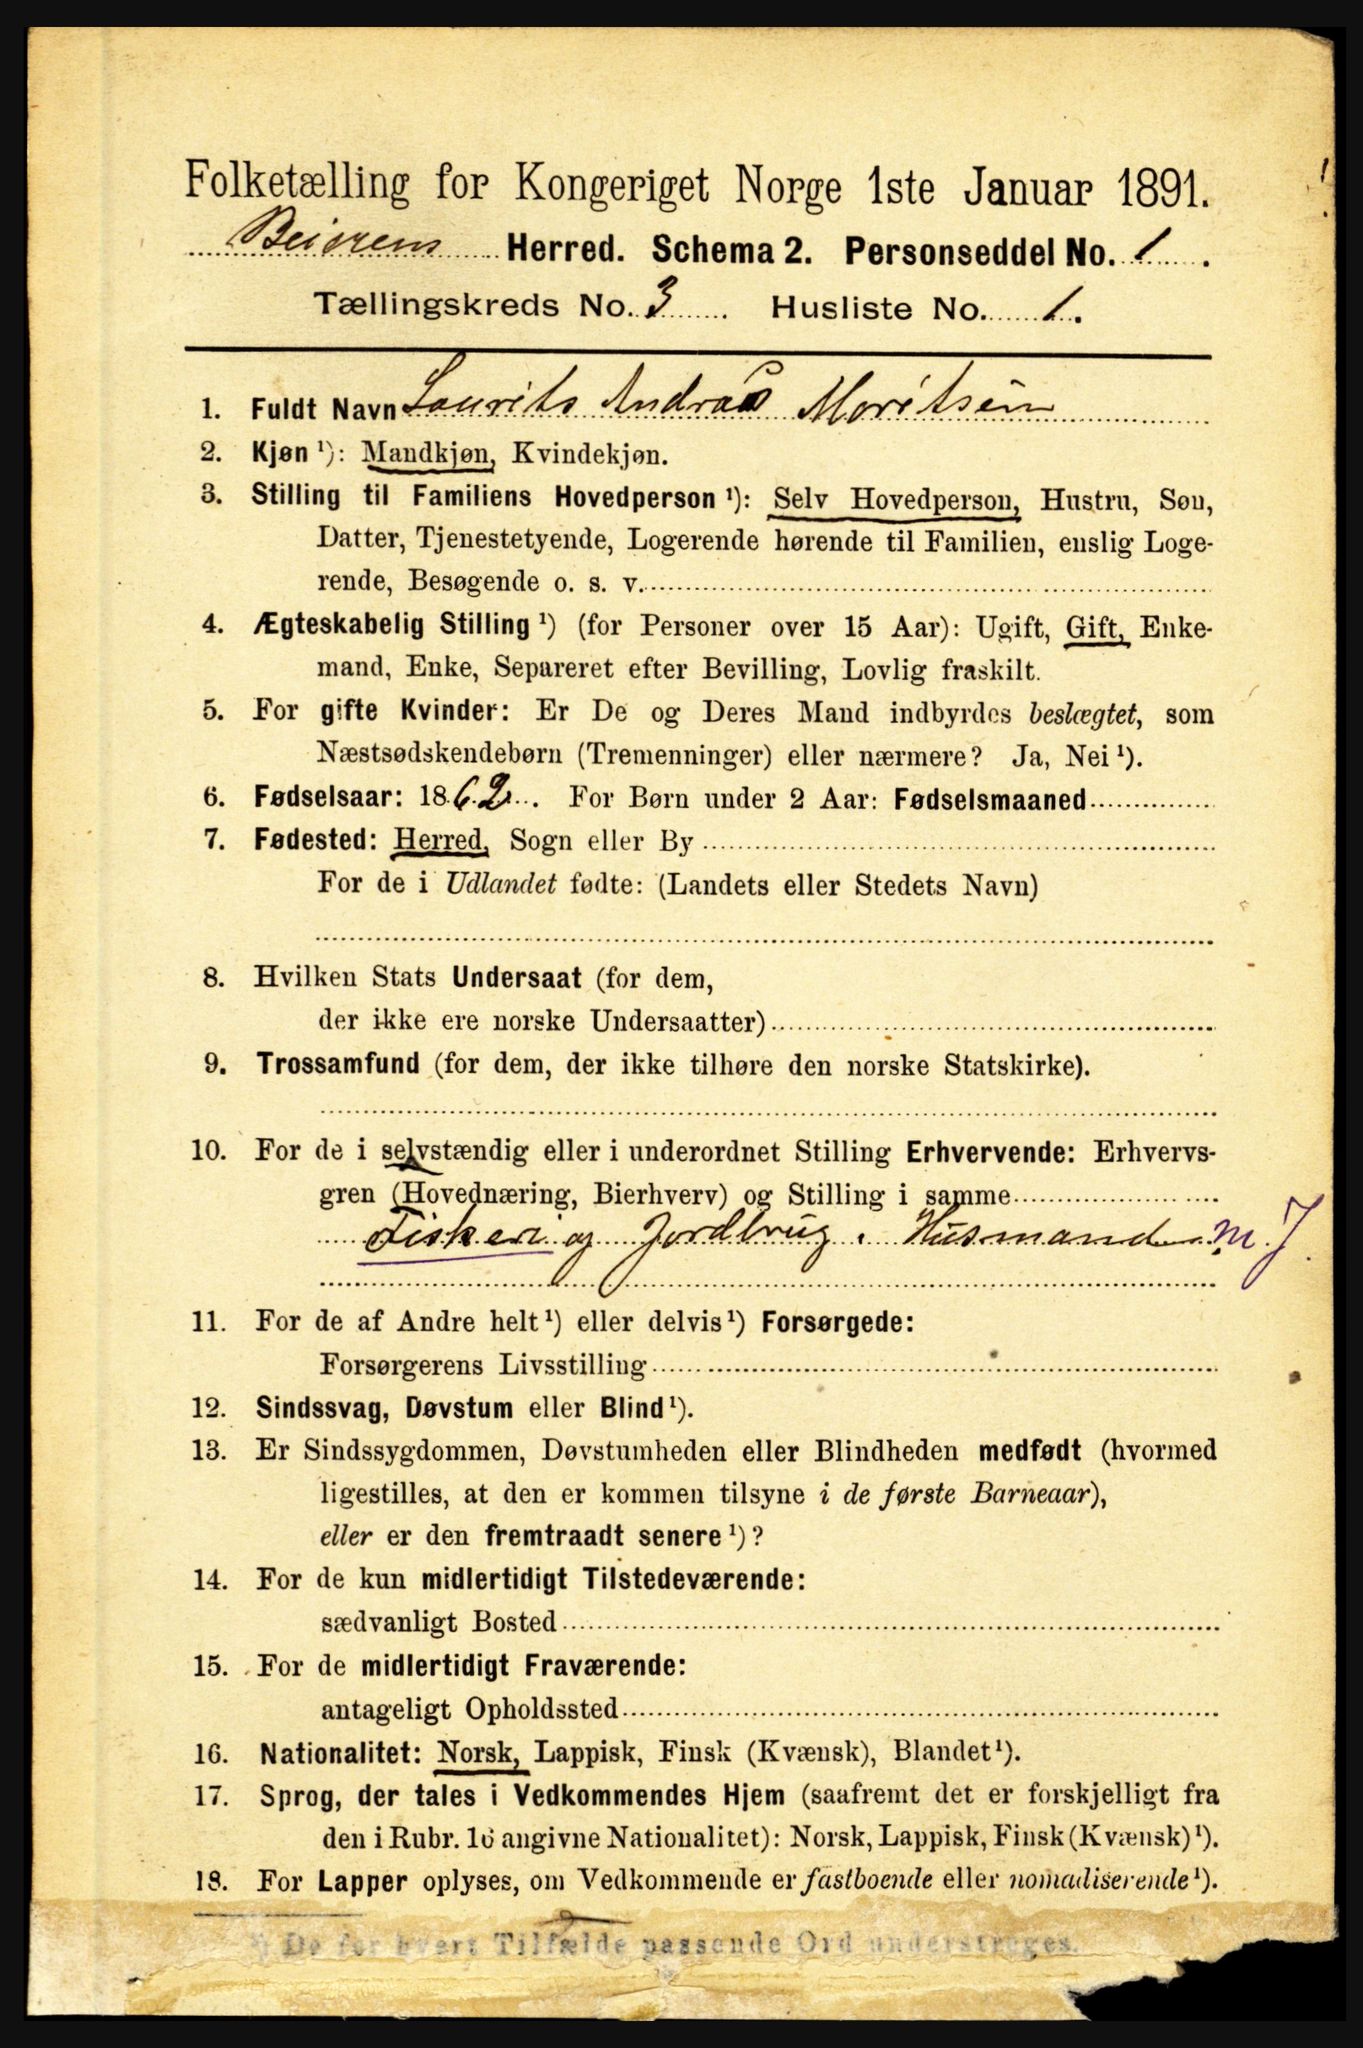 Folketælling for Kongeriget Norge 1ste Januar 1891.
Beierens Herred. Schema 2. Personseddel No. 1.
Tællingskreds No. 3. Husliste No. 1.
1. Fuldt Navn Laurits Andreas Moritsen
2. Kjøn ¹): Mandkjøn, Kvindekjøn.
3. Stilling til Familiens Hovedperson ¹): Selv Hovedperson, Hustru, Søn,
Datter, Tjenestetyende, Logerende hørende til Familien, enslig Loge-
rende, Besøgende o. s. v.
4. Ægteskabelig Stilling ¹) (for Personer over 15 Aar): Ugift, Gift, Enke-
mand, Enke, Separeret efter Bevilling, Lovlig fraskilt.
5. For gifte Kvinder: Er De og Deres Mand indbyrdes beslægtet, som
Næstsødskendebørn (Tremenninger) eller nærmere? Ja, Nei ¹).
6. Fødselsaar: 1862. For Børn under 2 Aar: Fødselsmaaned
7. Fødested: Herred, Sogn eller By
For de i Udlandet fødte: (Landets eller Stedets Navn)
8. Hvilken Stats Undersaat (for dem,
der ikke ere norske Undersaatter)
9. Trossamfund (for dem, der ikke tilhøre den norske Statskirke).
10. For de i selvstændig eller i underordnet Stilling Erhvervende: Erhvervs-
gren (Hovednæring, Bierhverv) og Stilling i samme
Fiskeri og Jordbrug. Husmand m. J.
11. For de af Andre helt ¹) eller delvis ¹) Forsørgede:
Forsørgerens Livsstilling
12. Sindssvag, Døvstum eller Blind ¹).
13. Er Sindssygdommen, Døvstumheden eller Blindheden medfødt (hvormed
ligestilles, at den er kommen tilsyne i de første Barneaar),
eller er den fremtraadt senere ¹)?
14. For de kun midlertidigt Tilstedeværende:
sædvanligt Bosted
15. For de midlertidigt Fraværende:
antageligt Opholdssted
16. Nationalitet: Norsk, Lappisk, Finsk (Kvænsk), Blandet ¹).
17. Sprog, der tales i Vedkommendes Hjem (saafremt det er forskjelligt fra
den i Rubr. 16 angivne Nationalitet): Norsk, Lappisk, Finsk (Kvænsk) ¹).
18. For Lapper oplyses, om Vedkommende er fastboende eller nomadiserende ¹).
¹) De for hvert Tilfælde passende Ord understreges.